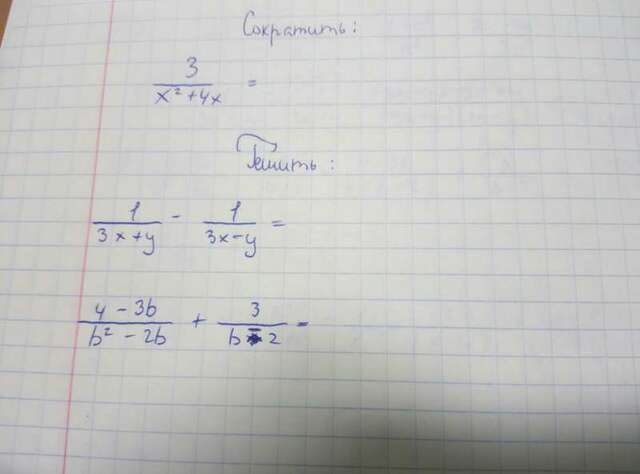 Сократить:
3
x² + 4x =
Решить:
1/(3x+y) - 1/(3x-y) =
(4 - 3b)/(b² - 2b) + 3/(b - 2) =